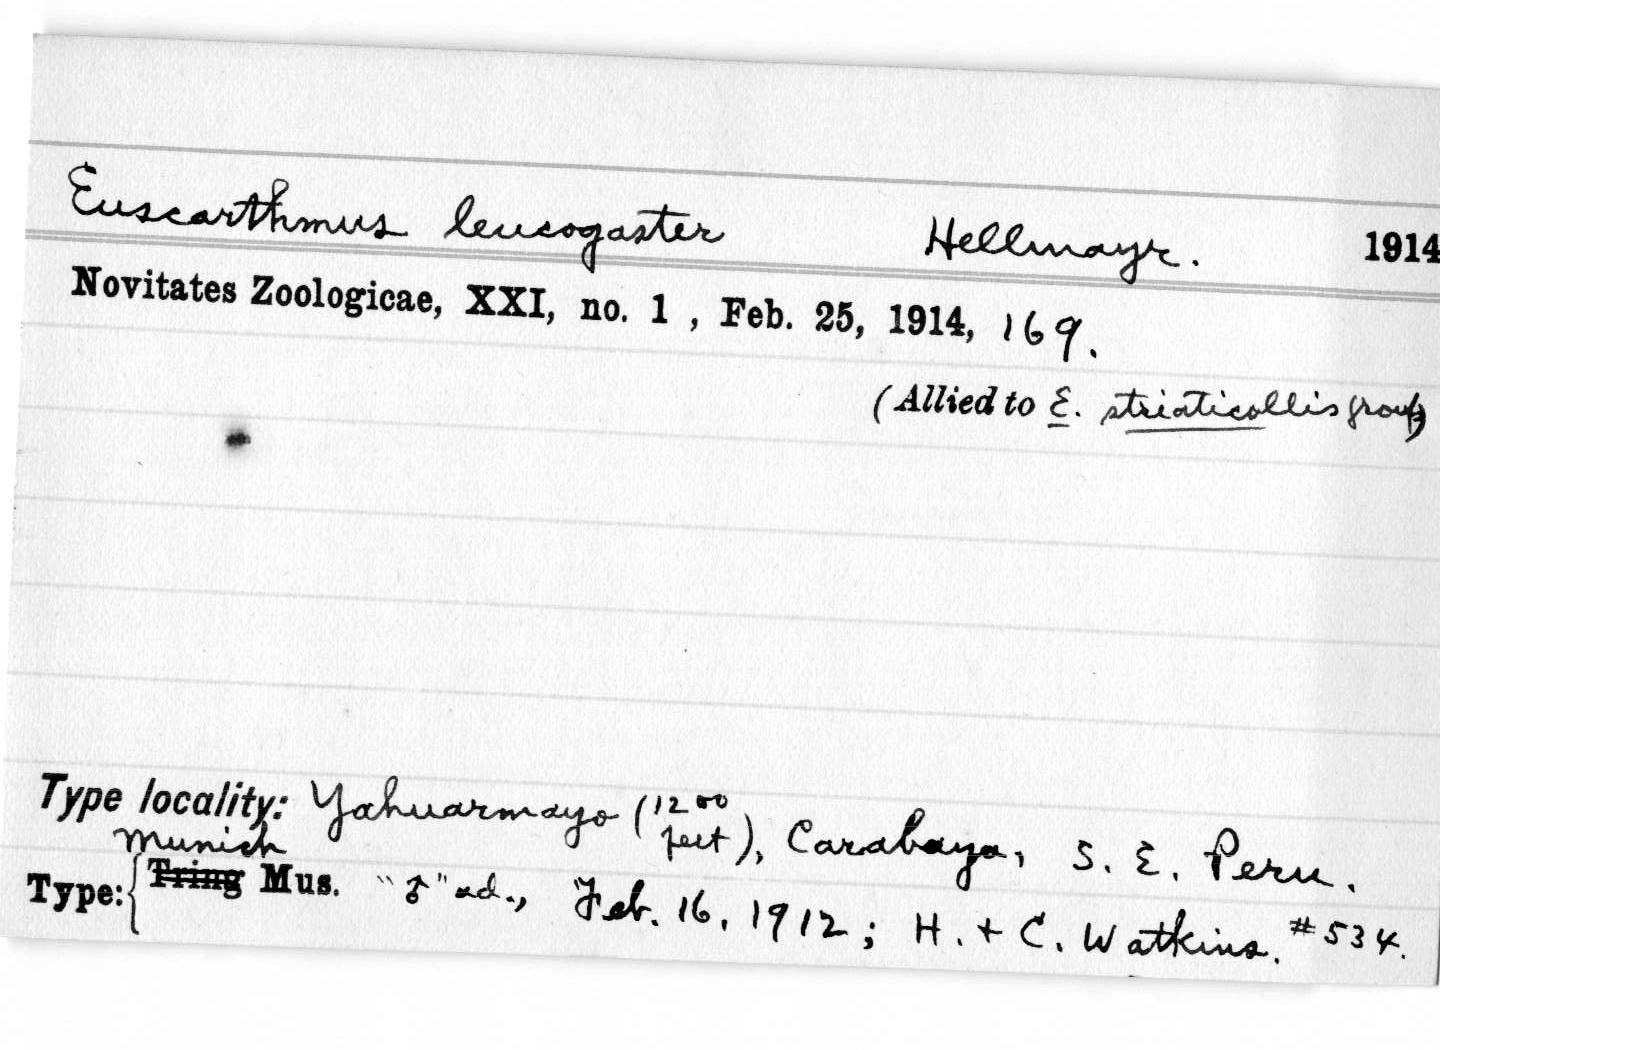 Euscarthmus leucogaster Hellmayr. 1914
Novitates Zoologicae, XXI, no. 1 , Feb. 25, 1914, 169.
(Allied to E. striaticollis group)
Type locality: Yahuarmayo (1200 feet), Carabaya, S. E. Peru.
Munich
Type: { Tring Mus. "♂" ad., Feb. 16, 1912; H. + C. Watkins. #534.